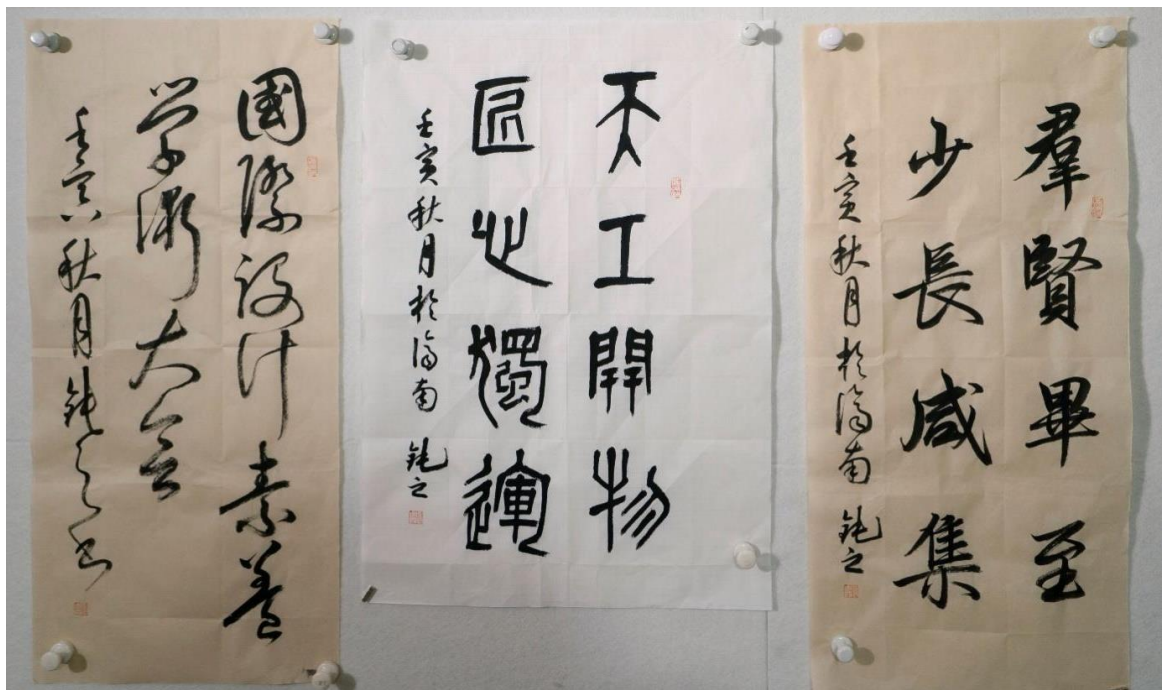 羣賢畢至
少長咸集
壬寅秋月於濟南 鈍之
天工開物
匠心獨運
壬寅秋月於濟南 鈍之
國際設計素養
学術大会
壬寅秋月鈍之书